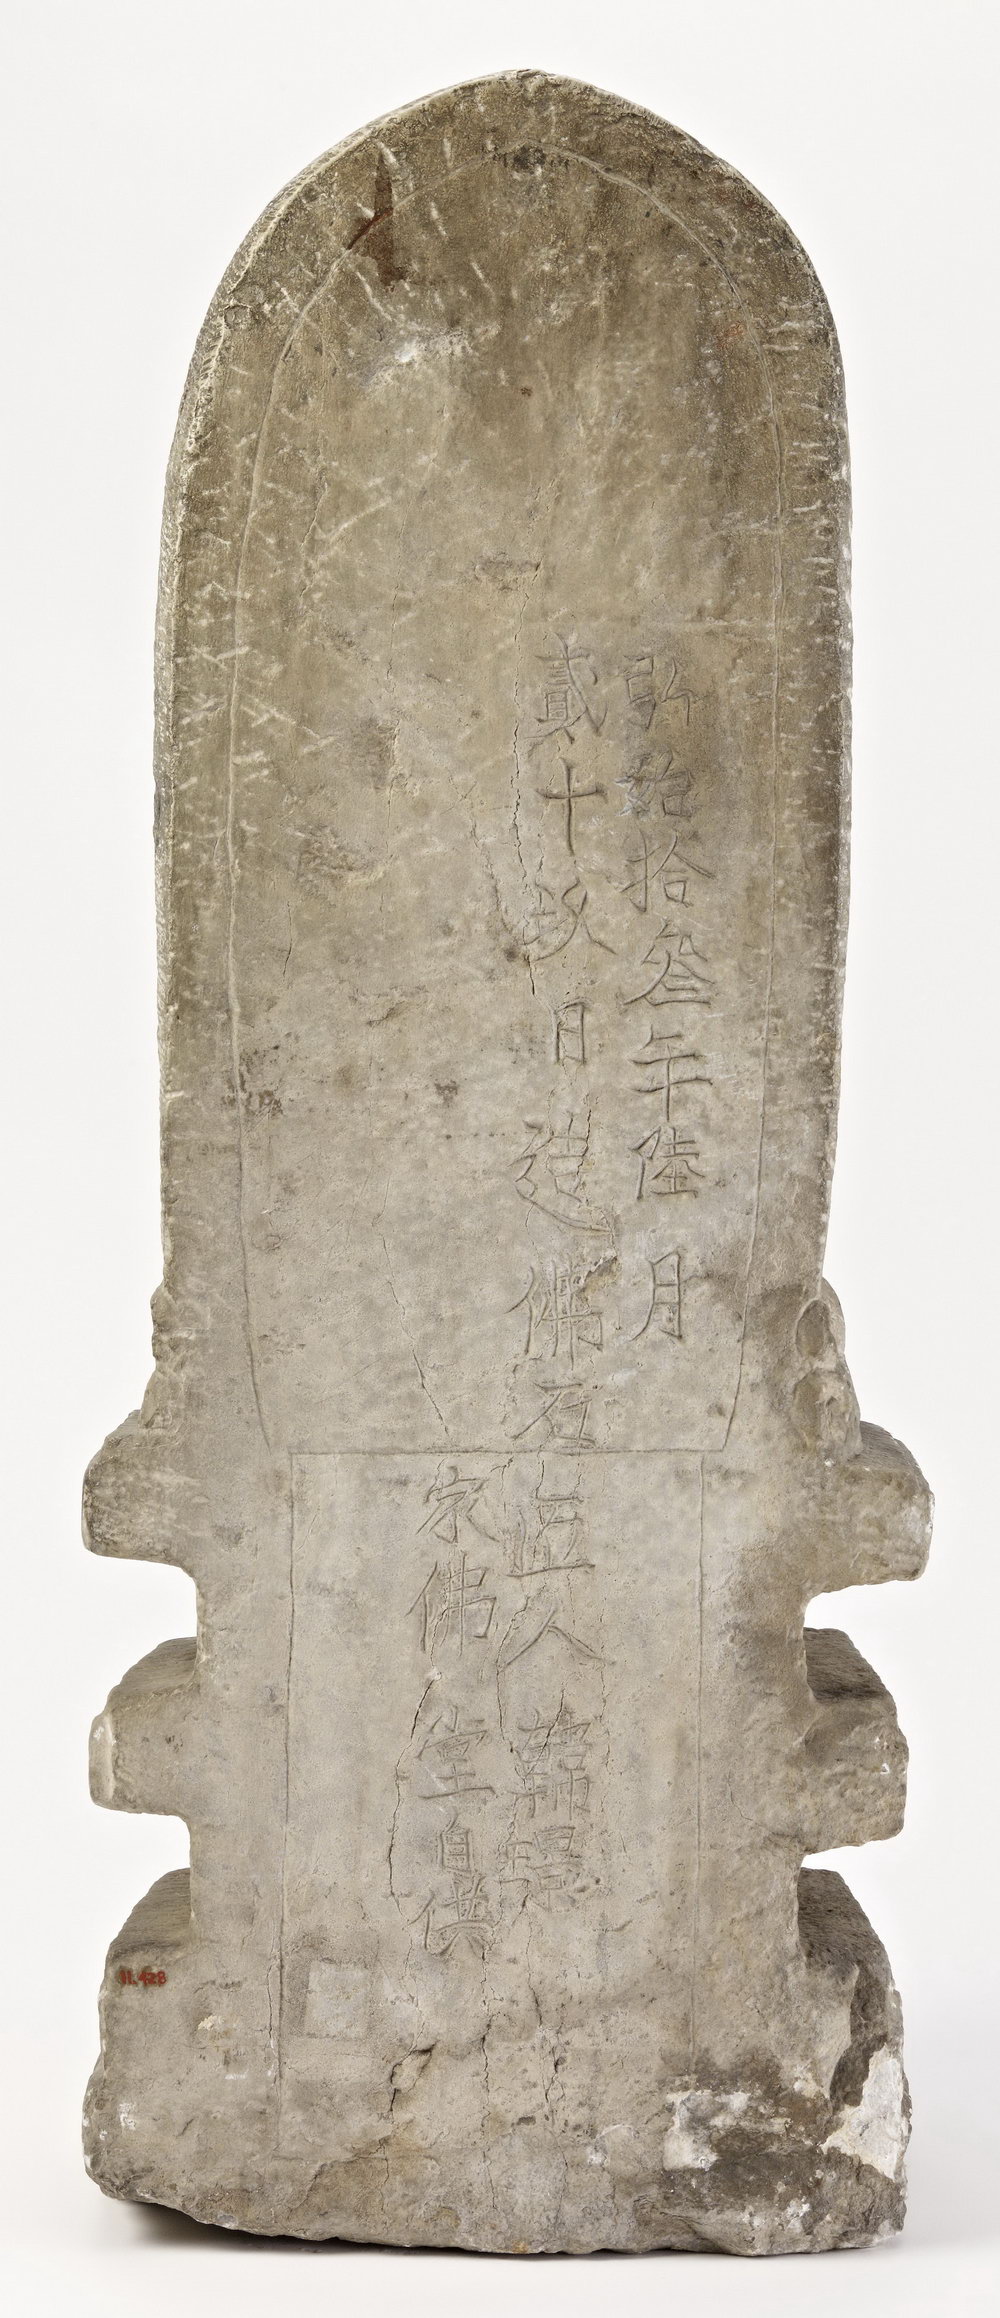 弘始拾叄年陸月
貳十玖日造佛石伍人韓
家佛堂自供
11.428